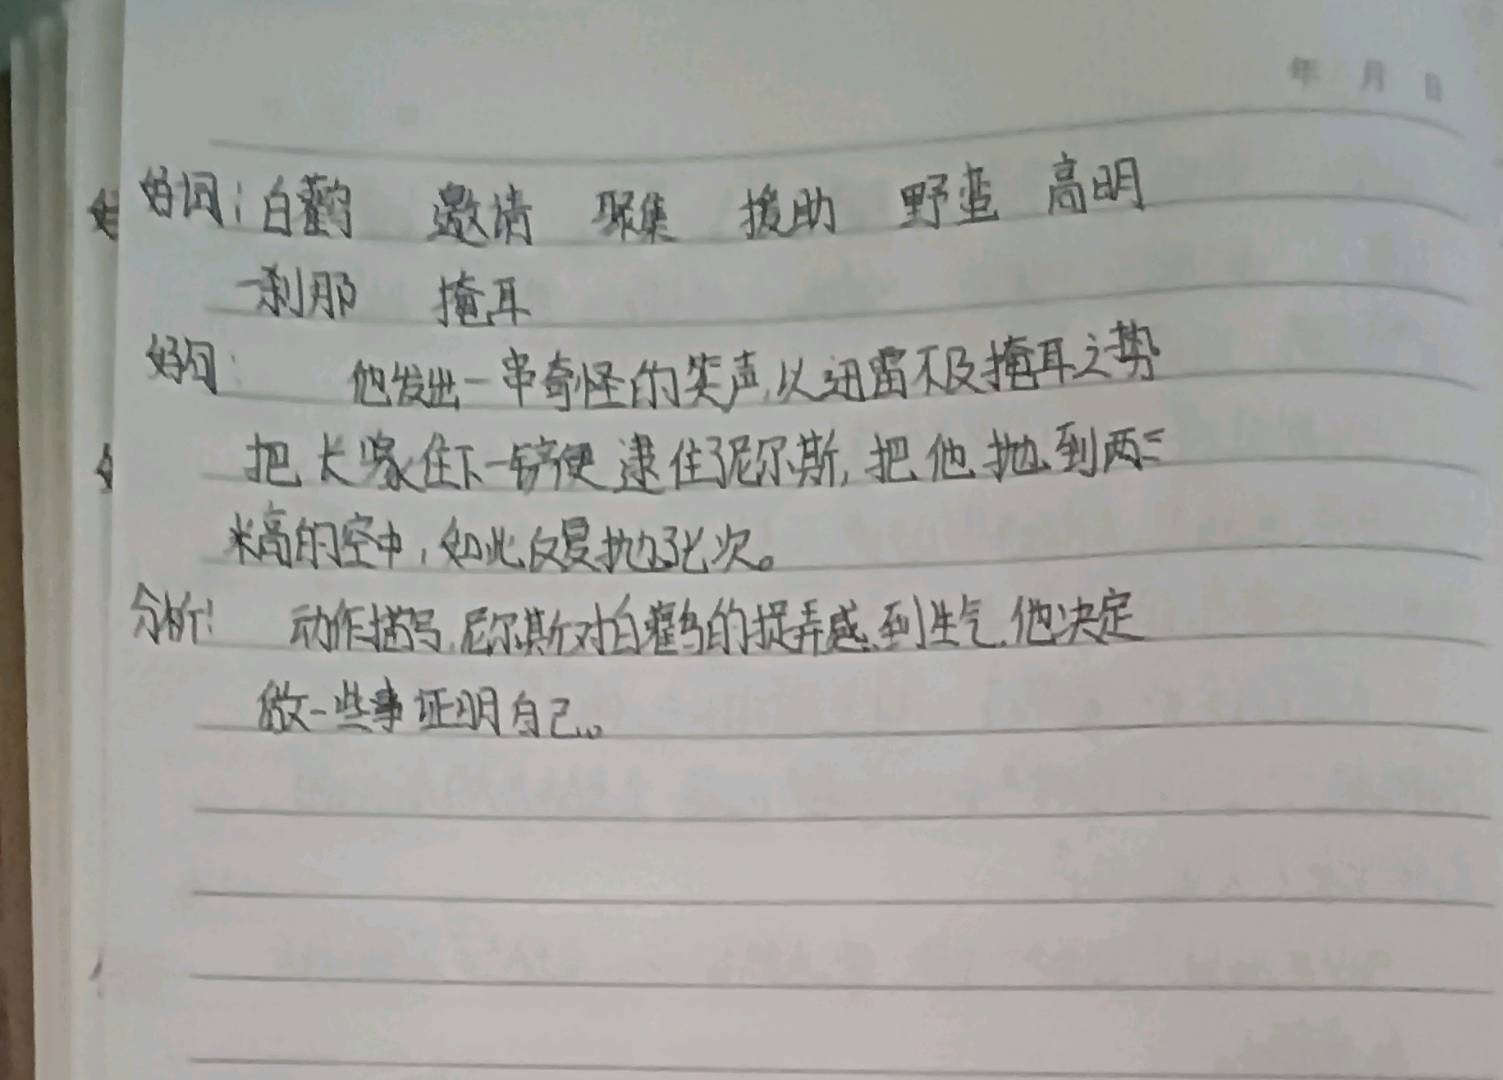 年 月 日
好词：白鹳 邀请 聚集 援助 野蛮 高明
一刹那 掩耳
好句： 他发出一串奇怪的笑声，以迅雷不及掩耳之势
把长喙往下一锛便逮住了尼尔斯，把他抛到两三
米高的空中，如此反复抛了七次。
分析： 动作描写，尼尔斯对白鹳鸟的捉弄感到生气，他决定
做一些事证明自己。